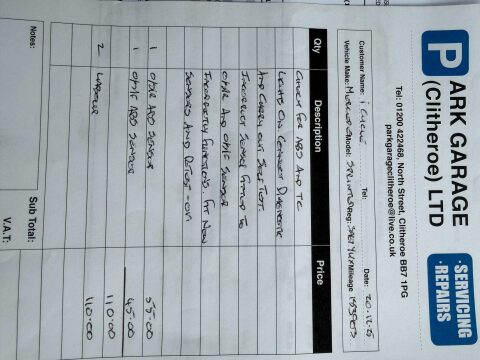 PARK GARAGE
(Clitheroe) LTD
·SERVICING
·REPAIRS
Tel: 01200 422468, North Street, Clitheroe BB7 1PG
parkgarageclitheroe@live.co.uk
Customer Name: Tel: Date:
Vehicle Make: Model: SPRINTER Reg: Mileage
Qty Description Price
CHECK FOR ABS AND TC
LIGHTS ON CONNECT DIAGNOSTIC
AND CARRY OUT SELF TEST.
INCORRECT SENSOR FITTED TO
O/S/R AND
INCORRECTLY FIT NEW
SENSORS AND
1 O/S/R ABS SENSOR 55.00
1 ABS SENSOR 45.00
110.00
2 LABOUR 110.00
Notes:
Sub Total:
V.A.T: